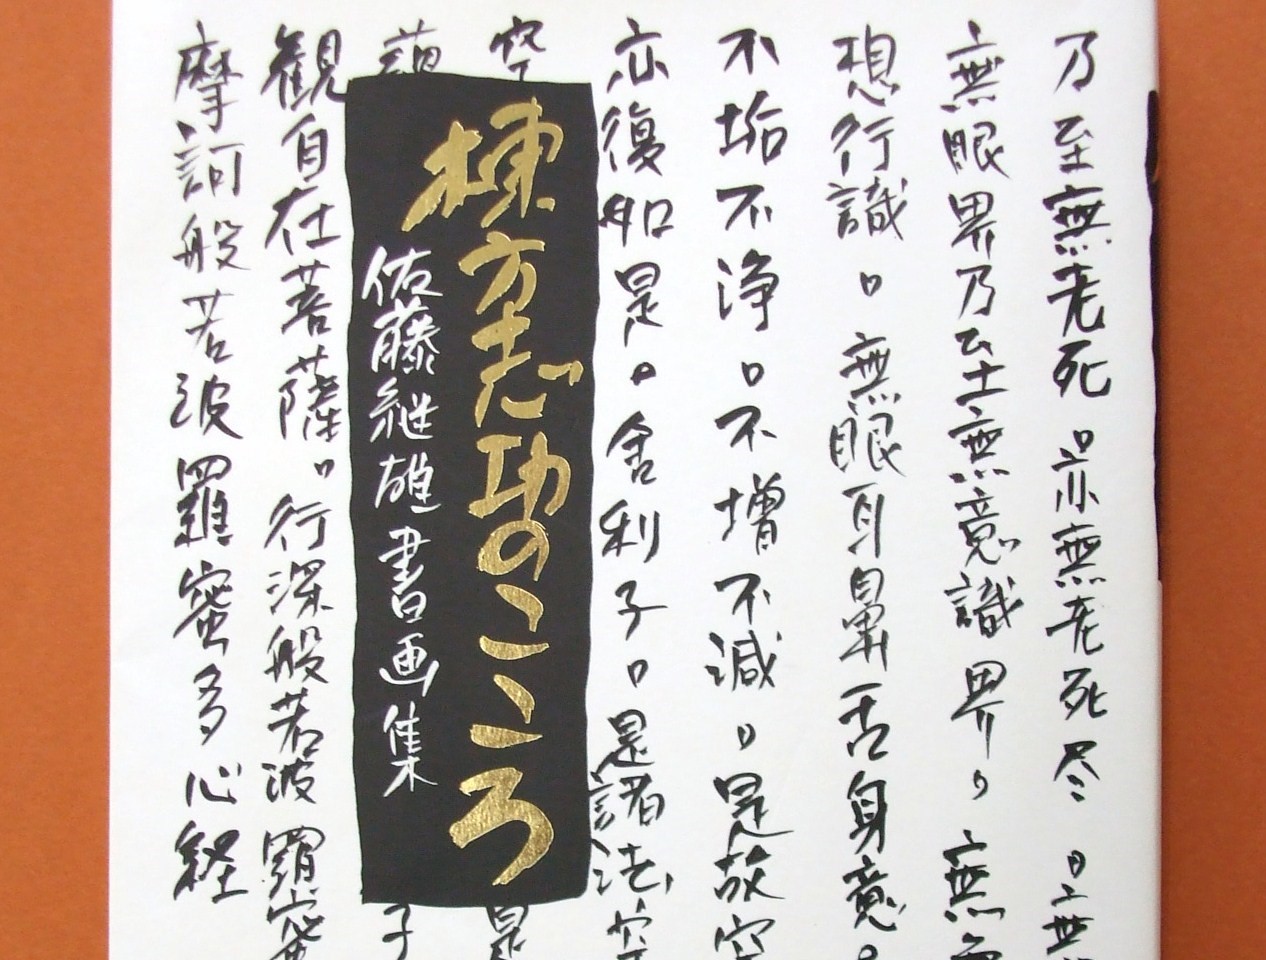 摩訶般若波羅蜜多心経
観自在菩薩。行深般若波羅蜜
蘊
子
棟方志功のこころ
佐藤継雄書画集
空
是
亦復如是。舎利子。是諸法空
不垢不浄。不増不減。是故空
想行識。無眼耳鼻舌身意。
無眼界乃至無意識界。無
乃至無老死。亦無老死尽。無